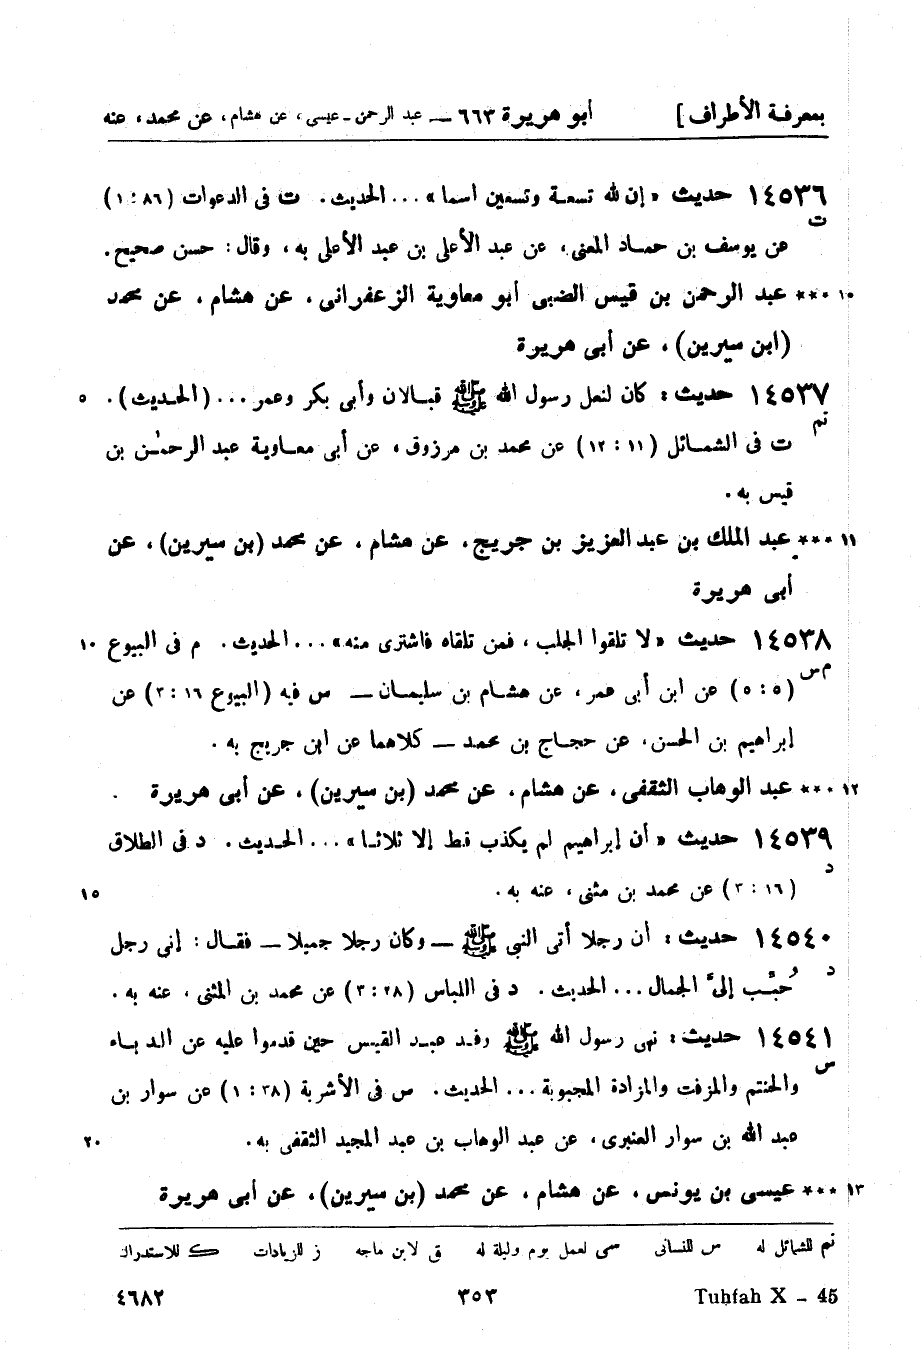 بمعرفة الأطراف] أبو هريرة ٦٦٣ — عبد الرحمن - عيسى، عن هشام، عن محمد، عنه
١٤٥٣٦ حديث «إن لله تسعة وتسعين اسما» ... الحديث. ت فى الدعوات (٨٦ : ١)
ت
عن يوسف بن حماد المعنى، عن عبد الأعلى بن عبد الأعلى به، وقال: حسن صحيح.
١٠ *** عبد الرحمن بن قيس الضبى أبو معاوية الزعفرانى، عن هشام، عن محمد
(ابن سيرين)، عن أبى هريرة
١٤٥٣٧ حديث: كان لنعل رسول الله ﷺ قبالان وأبى بكر وعمر ... (الحديث). ٥
تم
ت فى الشمائل (١١ : ١٢) عن محمد بن مرزوق، عن أبى معاوية عبد الرحمٰن بن
قيس به.
١١ *** عبد الملك بن عبد العزيز بن جريج، عن هشام، عن محمد (بن سيرين)، عن
أبى هريرة
١٤٥٣٨ حديث «لا تلقوا الجلب، فمن تلقاه فاشترى منه» ... الحديث. م فى البيوع ١٠
م س
(٥ : ٥) عن ابن أبى عمر، عن هشام بن سليمان — س فيه (البيوع ١٦ : ٢) عن
إبراهيم بن الحسن، عن حجاج بن محمد — كلاهما عن ابن جريج به.
١٢ *** عبد الوهاب الثقفى، عن هشام، عن محمد (بن سيرين)، عن أبى هريرة .
١٤٥٣٩ حديث «أن إبراهيم لم يكذب قط إلا ثلاثا» ... الحديث. د فى الطلاق
د
(١٦ : ٣) عن محمد بن مثنى، عنه به. ١٥
١٤٥٤٠ حديث: أن رجلا أتى النبى ﷺ — وكان رجلا جميلا — فقال: إنى رجل
د
حُبِّب إلىَّ الجمال ... الحديث. د فى اللباس (٢٨ : ٣) عن محمد بن المثنى، عنه به.
١٤٥٤١ حديث: نهى رسول الله ﷺ وفد عبد القيس حين قدموا عليه عن الدباء
س
والحنتم والمزفت والمزادة المجبوبة ... الحديث. س فى الأشربة (٣٨ : ١) عن سوار بن
عبد الله بن سوار العنبرى، عن عبد الوهاب بن عبد المجيد الثقفى به. ٢٠
١٣ *** عيسى بن يونس، عن هشام، عن محمد (بن سيرين)، عن أبى هريرة
تم للشمائل له س للنسائى سى لعمل يوم وليلة له ق لابن ماجه ز للزيادات ك للاستدراك
٤٦٨٢ ٣٥٣ Tuḥfah X – 45